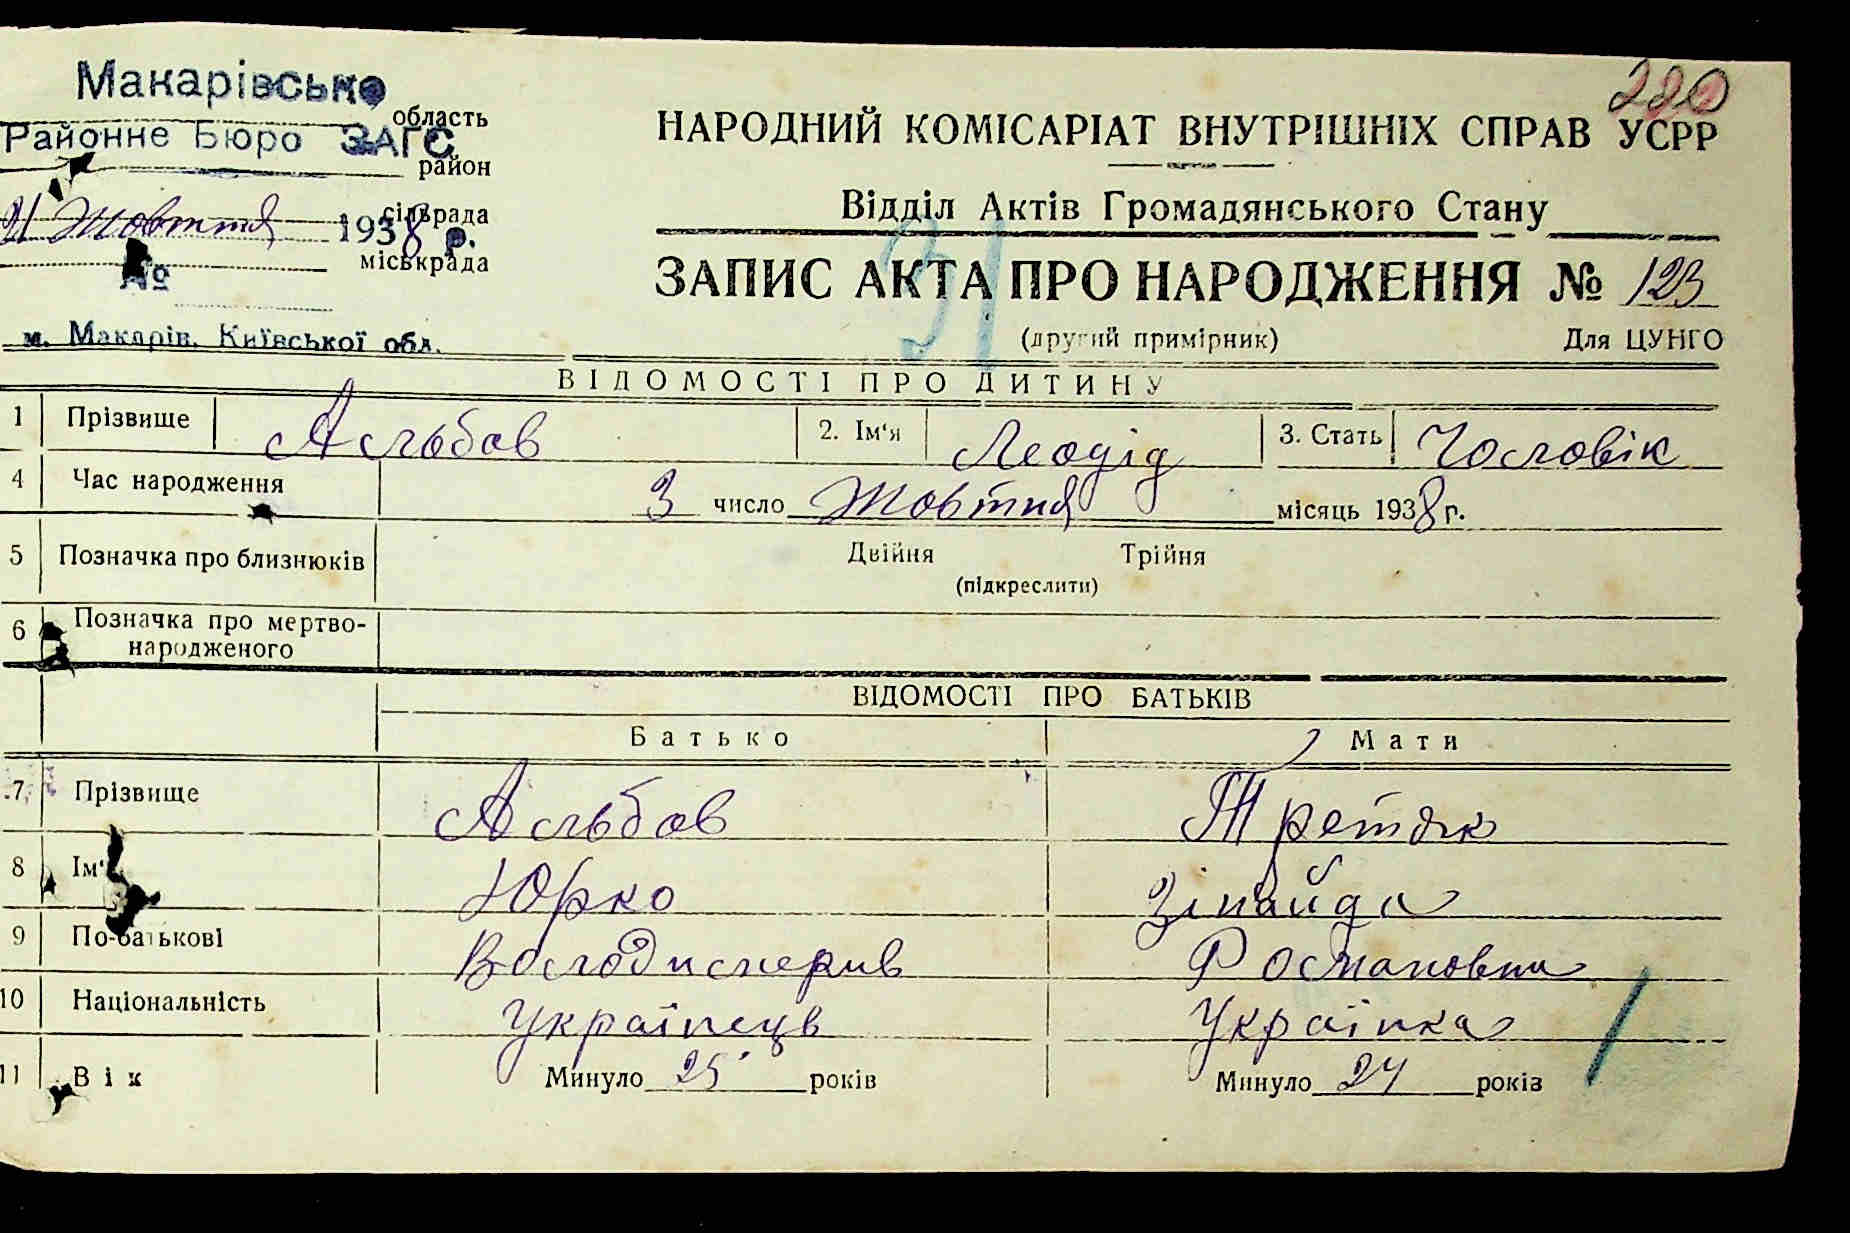 Макарівське
область
Районне Бюро ЗАГС
район
21 Жовтня 1938 р.
сільрада
міськрада
№
м. Макарів, Київської обл.
220
НАРОДНИЙ КОМІСАРІАТ ВНУТРІШНІХ СПРАВ УСРР
Відділ Актів Громадянського Стану
31
ЗАПИС АКТА ПРО НАРОДЖЕННЯ № 123
(другий примірник) Для ЦУНГО
ВІДОМОСТІ ПРО ДИТИНУ
1 Прізвище Альбов 2. Ім'я Леодід 3. Стать Чоловік
4 Час народження 3 число Жовтня місяць 1938 г.
5 Позначка про близнюків Двійня Трійня
(підкреслити)
6 Позначка про мертво-
народженого
ВІДОМОСТІ ПРО БАТЬКІВ
Батько Мати
7 Прізвище Альбов Третяк
8 Ім' Юрко Зінайда
9 По-батькові Володимерив Романовна
10 Національність Українець Українка
11 Вік Минуло 25 років Минуло 24 років